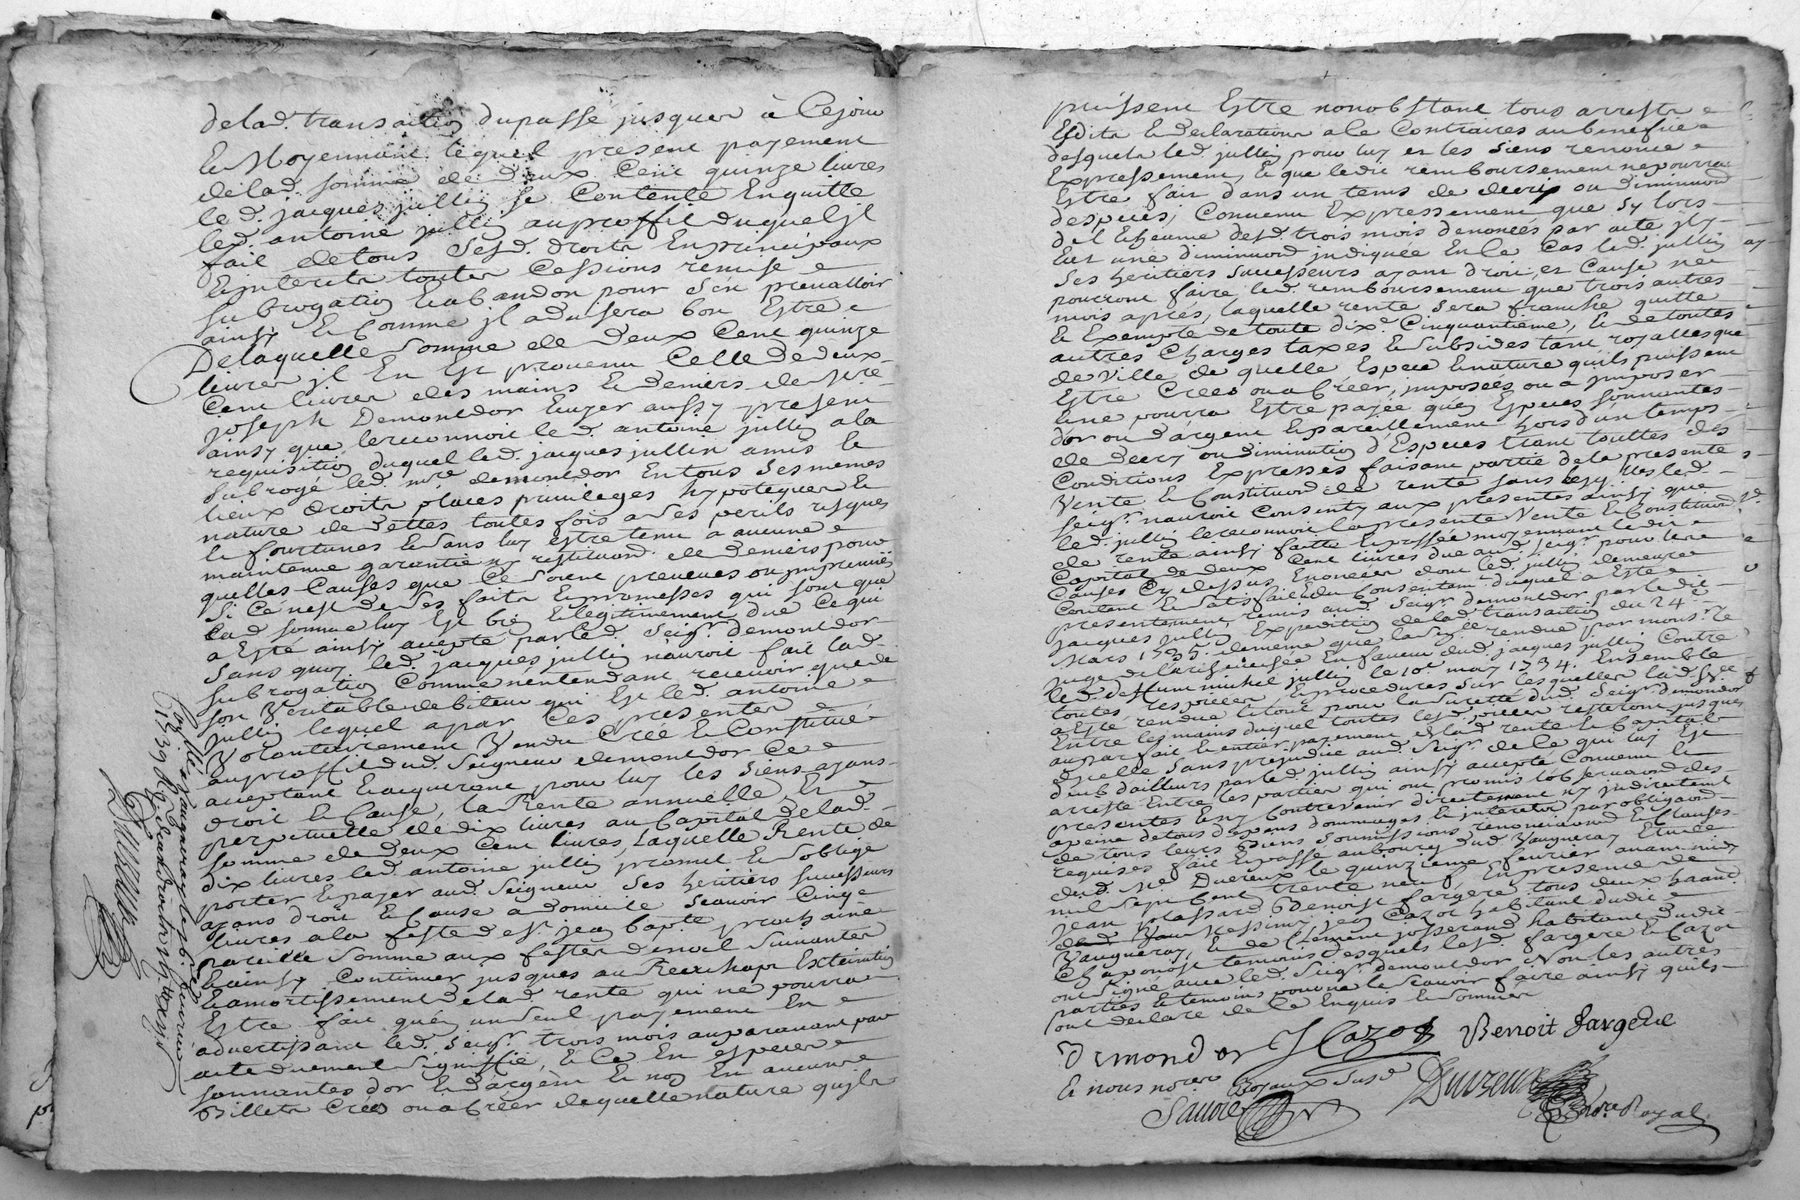 delad. transaction du passé jusques à Cejour
Et Moyennant lequel present payement
delad. somme de deux Cent quinze livres
led. jacques jullin se Contente Enquitte
led. antoine jullin auproffit duquel jl
fait de tous sesd. droits Enprincipaux
Et interets toutes Cessions remise Et
subrogation Et abandon pour sen prevalloir
ainsy Et Comme jl aduisera bon Estre
De laquelle somme de deux Cent quinze
livres jl En Est provenu Celle de deux
Cent livres des mains Et deniers de
joseph Demontdor Ecuyer aussy present
ainsy que le reconnoit led. antoine jullin ala
requisition duquel led. jacques jullin amis Et
subrogé led. demontdor En tous ses memes
lieux droits places privileges hypoteques Et
nature de dettes toutes fois a ses perils risques
Et fourtunes Et sans luy Estre tenu a aucune
maintenue garantie ny restituond. de deniers pour
quelles Causes que Ce soient preveues ou jmpreveües
si Ce nest de ses faits Et promesses qui sont que
lad somme luy Est bien Et legitimement due Ce qui
a Esté ainsy accepté par led. Seigr. demontdor
sans quoy led. jacques jullin nauroit fait lad.
subrogation Comme nentendant recevoir que de
son veritable debiteur qui Est led. antoine
jullin lequel a par Ces presentes
Volontairement Vendu Créé Et Constitué
auproffit dud. Seigneur demontdor Ce
acceptant Et acquerant pour luy les siens ayans
droit Et Cause, la Rente annuelle Et
perpetuelle de dix livres au Capital delad.
somme de deux Cent livres, laquelle Rente de
dix livres led. antoine jullin promet Et soblige
porter Et payer aud. Seigneur ses heritiers successeurs
ayans droit Et Cause a domicile scauoir Cinq
livres ala feste de st. jean bapte. prochaine
pareille somme aux festes de noel suivantes
Et ainsy Continuer jusques au Rachapt Extinction
Et amortissement delad rente qui ne pourra
Estre fait quen un seul payement En
advertissant led. Seigr. trois mois auparavant par
acte duement signiffié, Et Ce En especes
sonnantes dor Et dargent Et non En aucuns
Billets Créés ou a Créer de quelle nature quils
puissent Estre nonobstant tous arrests
Edits Et declarations a Ce Contraires au benefice
desquels led. jullin pour luy et les siens renonce
Expressement, Et que ledit remboursement ne pourra
Estre fait dans un tems de decry ou diminuond
despeces, Convenu Expressement que sy lors
de lEcheance desd. trois mois denoncés par acte jl y
Eut une diminuond jndiquée En Ce Cas led. jullin
ses heritiers successeurs ayant droit et Cause ne
pourront faire led. remboursement que trois autres
mois apres, laquelle rente sera franche quitte
Et Exempte de toute dixe. Cinquantieme, Et de toutes
autres Charges taxes Et subsides tant royalles que
de ville de quelle Espece Et nature quils puissent
Estre Créés ou a Créer, jmposées ou a jmposer
Et ne pourra Estre payée quen Especes sonnantes
dor ou dargent Et pareillement hors dun temps
de decry ou diminution dEspeces tant touttes des
Conditions Expresses faisant partie dela presente
Vente Et Constituond de rente sans lesquelles led.
Seigr. nauroit Consenty aux presentes ainsy que
led. jullin le reconnoit la presente Vente Et Constituond
de rente ainsy faitte Et passée moyennant ledit
Capital de deux Cent livres due aud. Seigr. pour les
Causes Cy dessus Enoncées dont led. jullin demeure
Content Et satisfait du Consentemt. duquel a Esté
presentement remis aud. Seigr. demontdor par ledit
jacques jullin Expedition delad transaction du 24
Mars 1735. demême que la Sentce rendue par monsr. le
juge de Larbresle En faveur dud. jacques jullin Contre
led. deffunt michel jullin le 10e. may 1734. Ensemble
toutes les pieces Et procedures sur lesquelles lad. Sce.
a Esté rendue le tout pour la sureté dud. Seigr. demontdor
Entre les mains duquel toutes lesd. pieces resteront jusques
au parfait Et entier payement delad rente Et Capital
dicelle sans prejudice aud. Seigr. de Ce qui luy Est
dub dailleurs par led. jullin ainsy accepté Convenu Et
arresté Entre les parties qui ont promis lobservaond des
presentes Et ny Contrevenir directement ny jndirectement
apeine de tous depens dommages Et interets par obligaond
de tous leurs biens soumissions renonciaond Et Clauses
requises fait Et passé au bourg dud. Vaugneray Etude
dud. Me. Duvieux le quinzieme fevrier avant midy
mil Sept Cent trente neuf, En presence de
jean plassard Benoist fargere tous deux
jean Cazot habitant dudit
Vaugneray, Et de Clement josserand habitant dudit
Chaponost temoins desquels lesd. fargere Et Cazot
ont signé avec led. Seigr. demontdor Non les autres
parties Et temoins pour ne le scavoir faire ainsy quils
ont declaré de Ce Enquis Et sommés
Demondor JCazot Benoit fargere
Et nous nores Royaux susd
Savoie Duvieux
nore. Royal